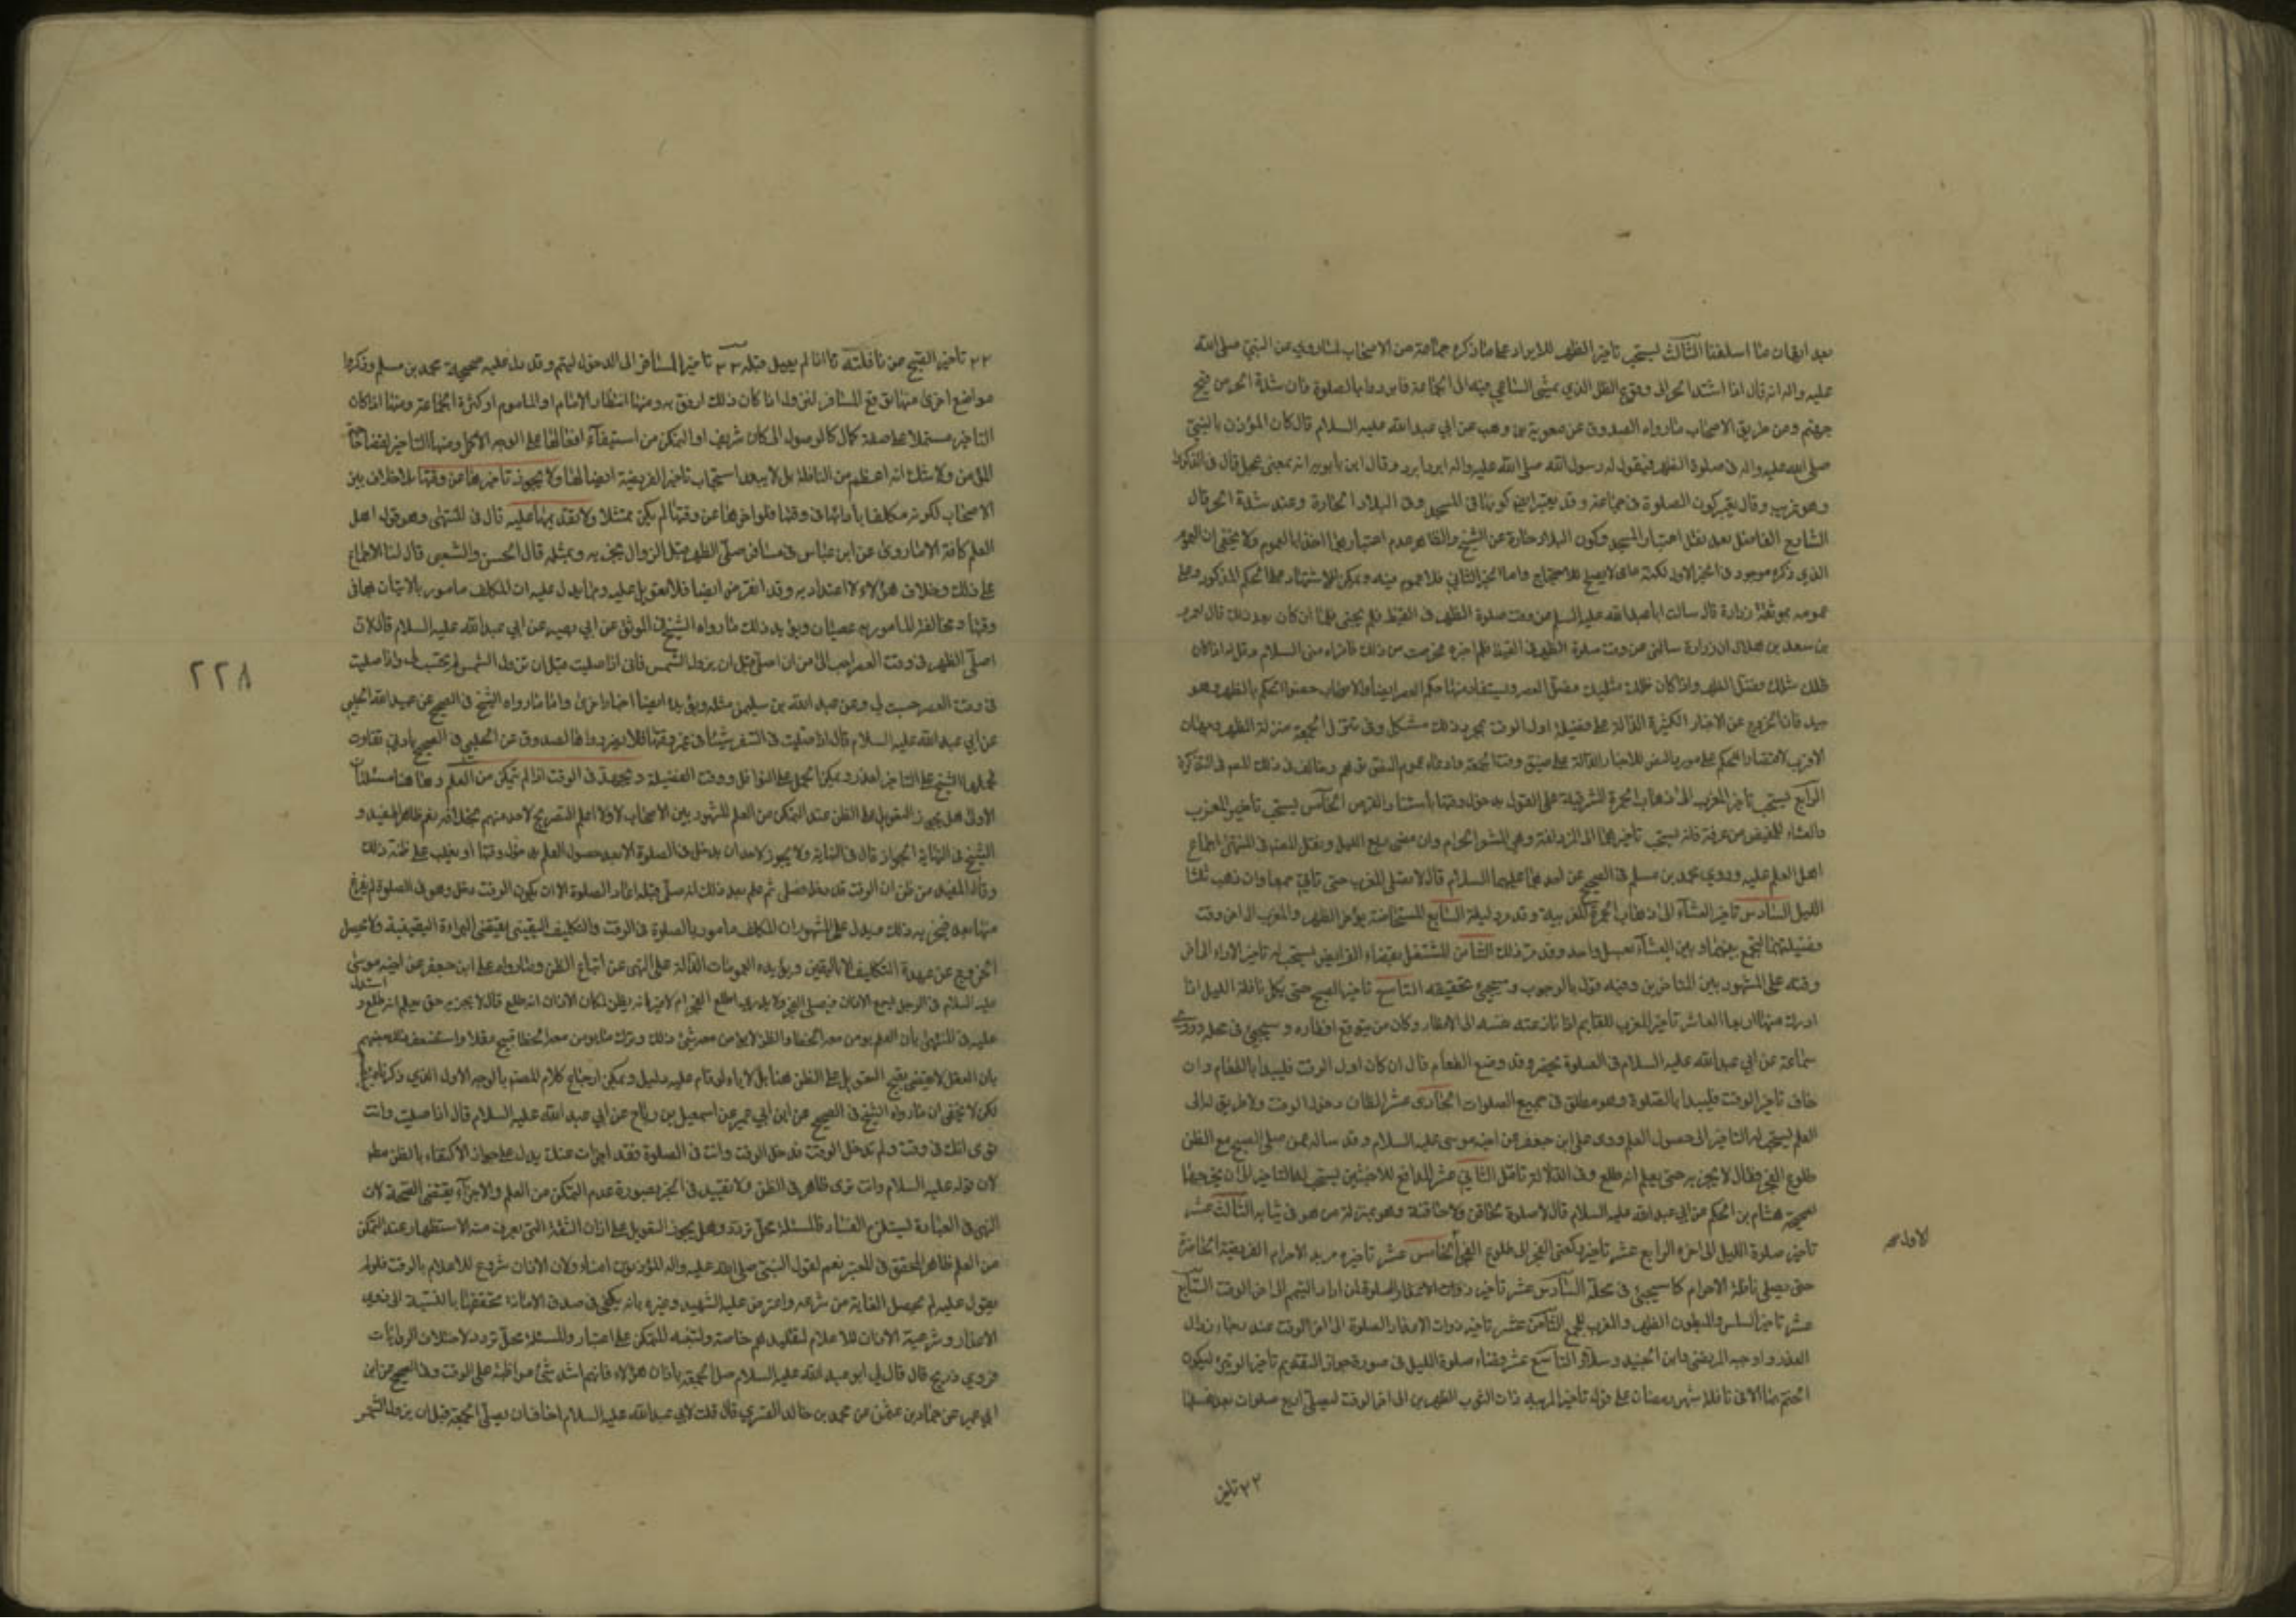 بعد اتقان ما اسلفنا الثالث يستحب تاخير الظهر للابراد على ما ذكره جماعة من الاصحاب لما روي عن النبي صلى الله
عليه واله انه قال اذا اشتد الحر الى وقوع الظل الذي يمشي الساعي فيه الى الجماعة فابردوا بالصلوة فان شدة الحر من فيح
جهنم ومن طريق الاصحاب ما رواه الصدوق عن معوية بن وهب عن ابي عبدالله عليه السلام قال كان المؤذن ياتي النبي
صلى الله عليه واله في صلوة الظهر فيقول له رسول الله صلى الله عليه واله ابرد ابرد وقال ابن بابويه انه بمعنى عجل قال في الذكرى
وهو غريب وقال يعتبر كون الصلوة في جماعة وقد يعتبر ايضا كونها في المسجد وفي البلاد الحارة وعند شدة الحر قال
الشارح الفاضل بعد نقل اعتبار المسجد وكون البلاد حارة عن الشيخ والظاهر عدم اعتبارهما اخذا بالعموم ولا يخفى ان العموم
الذي ذكره موجود في الخبر الاول لكنه عامي لا يصلح للاحتجاج واما الخبر الثاني فلا عموم فيه ويمكن الاستشهاد على الحكم المذكور وعلى
عمومه بموثقة زرارة قال سالت ابا عبدالله عليه السلم من وقت صلوة الظهر في القيظ فلم يجبني فلما ان كان بعد ذلك قال لعمرو
بن سعد بن هلال ان زرارة سالني عن وقت صلوة الظهر في القيظ فلم اخبره فحرجت من ذلك فاقراه مني السلام وقل له اذا كان
ظلك مثلك فصل الظهر واذا كان ظلك مثليك فصل العصر ويستفاد منها حكم العصر ايضا والاصحاب خصوا الحكم بالظهر وهو
جيد فان الخروج عن الاخبار الكثيرة الدالة على فضيلة اول الوقت بمجرد ذلك مشكل وفي تنزل الجمعة منزلة الظهر وجهان
الاقرب لا اقتصارا للحكم على مورد النص للاخبار الدالة على ضيق وقت الجمعة وادعاء عموم النص توهم وخالف في ذلك المصـ في التذكرة
الرابع يستحب تاخير المغرب الى ذهاب الحمرة المشرقية على القول بدخول وقتها باستتار القرص الخامس يستحب تاخير المغرب
والعشاء للمفيض من عرفة فانه يستحب تاخيرهما الى المزدلفة وهي المشعر الحرام وان مضى ربع الليل ونقل المصـ في المنتهى اجماع
اهل العلم عليه وروى محمد بن مسلم في الصحيح عن احدهما عليهما السلام قال لا تصلي المغرب حتى تاتي جمعا وان ذهب ثلث
الليل السادس تاخير العشاء الى ذهاب الحمرة المغربية وقد مر دليله السابع المستحاضة يؤخر الظهر والمغرب الى اخر وقت
فضيلتهما لتجمع بينهما وبين العشاء بغسل واحد وقد مر ذلك الثامن المشتغل بقضاء الفرايض يستحب له تاخير الاداء الى اخر
وقته على المشهور بين المتاخرين وفيه قول بالوجوب وسيجئ تحقيقه التاسع تاخير الصبح حتى يكمل نافلة الليل اذا
ادرك منها اربعا العاشر تاخير المغرب للصايم اذا نازعته نفسه الى الافطار وكان من يتوقع افطاره وسيجئ في محله وروى
سماعة عن ابي عبدالله عليه السلام في الصلوة تحضر وقد وضع الطعام قال ان كان اول الوقت فليبدا بالطعام وان
خاف تاخير الوقت فليبدا بالصلوة وهو مطلق في جميع الصلوات الحادى عشر الظان دخول الوقت ولا طريق له الى
العلم يستحب له التاخير الى حصول العلم وروى علي ابن جعفر عن اخيه موسى عليه السلام وقد ساله عمن صلى الصبح مع الظن
طلوع الفجر فقال لا يجزيه حتى يعلم انه طلع وفي الدلالة تامل الثاني عشر المدافع للاخبثين يستحب له التاخير الى ان يخرجهما
لصحيحة هشام بن الحكم عن ابي عبدالله عليه السلام قال لا صلوة لحاقن ولا حاقنة وهو بمنزلة من هو في ثيابه الثالث عشر
تاخير صلوة الليل الى اخره الرابع عشر تاخير ركعتي الفجر الى طلوع الفجر الخامس عشر تاخيره مريد الاحرام الفريضة الحاضرة
حتى يصلي نافلة الاحرام كما سيجئ في محله السادس عشر تاخير ذوات الاعذار الصلوة لمن اراد التيمم الى اخر الوقت السابع
عشر تاخير السلس والمبطون الظهر والمغرب للجمع الثامن عشر تاخير ذوات الاعذار الصلوة الى اخر الوقت عند رجاء زوال
العذر واوجبه المرتضى وابن الجنيد وسلار التاسع عشر قضاء صلوة الليل في صورة جواز التقديم تاخير الوتيرة ليكون
الختم بها الا في نافلة شهر رمضان على قول تاخير المربية ذات الثوب الظهرين الى اخر الوقت لتصلي اربع صلوات بعد غسلها
الاول
٢٢ تاخير
٢٢ تاخير الصبح عن نافلته اذا لم يصل قبله ٢٣ تاخير المسافر الى الدخول ليتم وقد دل عليه صحيحة محمد بن مسلم وذكروا
مواضع اخرى منها توقع المسافر لنزوله اذا كان ذلك ارفق به ومنها انتظار الامام او الماموم او كثرة الجماعة ومنها اذا كان
التاخير مشتملا على صفة كمال كالوصول الى مكان شريف او التمكن من استيفاء افعالها على الوجه الاكمل ومنها التاخير لقضاء حاجة
المؤمن ولا شك انه اعظم من النافلة بل لا يبعد استحباب تاخير الفريضة ايضا لها ولا يجوز تاخيرها عن وقتها بلا خلاف بين
الاصحاب لكونه مكلفا بادائها في وقتها فلو اخرها عن وقتها لم يكن ممتثلا ولا تقديمها عليه قال في المنتهى وهو قول اهل
العلم كافة الا ما روى عن ابن عباس في مسافر صلى الظهر قبل الزوال يجزيه وبمثله قال الحسن والشعبي قال لنا الاجماع
على ذلك وخلاف هؤلاء لا اعتداد به وقد انقرض ايضا فلا تعويل عليه ومما يدل عليه ان المكلف مامور بالاتيان بها في
وقتها ومخالفة المامور به عصيان ويؤيد ذلك ما رواه الشيخ في الموثق عن ابي بصير عن ابي عبدالله عليه السلام قال لان
اصلي الظهر في وقت العصر احب الى من ان اصلي قبل ان يزول الشمس فاني اذا صليت قبل ان تزول الشمس لم يحتسب لي واذا صليت
في وقت العصر حسبت لي وعن عبد الله بن سليمن مثله ويؤيده ايضا اخبار اخرى واما ما رواه الشيخ في الصحيح عن عبيد الله الحلبي
عن ابي عبدالله عليه السلام قال اذا صليت في السفر شيئا في غير وقتها فلا يضر ورواها الصدوق عن الحلبي في الصحيح بادنى تفاوت
فحملها الشيخ على التاخير لعذر ويمكن الحمل على النوافل ووقت الفضيلة ويجتهد في الوقت اذا لم يتمكن من العلم وها هنا مسئلتان
الاولى هل يجوز التعويل على الظن عند التمكن من العلم المشهور بين الاصحاب لا ولا اعلم التصريح لاحد منهم بخلافه نعم ظاهر المفيد و
الشيخ في النهاية الجواز قال في النهاية ولا يجوز لاحد ان يدخل في الصلوة الا بعد حصول العلم بدخول وقتها او يغلب على ظنه ذلك
وقال المفيد من ظن ان الوقت قد دخل فصلى ثم علم بعد ذلك انه صلى قبله اعاد الصلوة الا ان يكون الوقت دخل وهو في الصلوة لم يفرغ
منها بعد فيجزيه ذلك ويدل على المشهور ان المكلف مامور بالصلوة في الوقت والتكليف اليقيني يقتضي البراءة اليقينية ولا تحصل
الخروج عن عهدة التكليف الا باليقين ويؤيده العمومات الدالة على النهى عن اتباع الظن وما رواه علي ابن جعفر عن اخيه موسى
عليه السلام في الرجل يسمع الاذان فيصلي الفجر ولا يدري اطلع الفجر ام لا غير انه يظن لمكان الاذان انه طلع قال لا يجزيه حتى يعلم انه طلع و استدل
عليه في المنتهى بان العلم يؤمن معه الخطا والظن لا يؤمن معه شئ ذلك وترك ما يؤمن معه الخطا قبيح عقلا واستضعفه بعضهم
بان العقل لا يقتضي بقبح التعويل على الظن هنا بل لا ياباه لو قام عليه دليل ويمكن ارجاع كلام المصـ بالوجه الاول الذي ذكرناه
لكن لا يخفى ان ما رواه الشيخ في الصحيح عن ابن ابي عمير عن اسمعيل بن رباح عن ابي عبد الله عليه السلام قال اذا صليت وانت
ترى انك في وقت ولم يدخل الوقت فدخل الوقت وانت في الصلوة فقد اجزات عنك يدل على جواز الاكتفاء بالظن مطـ
لان قوله عليه السلام وانت ترى ظاهر في الظن ولا تقييد في الخبر بصورة عدم التمكن من العلم والاجزاء يقتضي الصحة لان
النهى في العبادة يستلزم الفساد فالمسئلة محل تردد وهل يجوز التعويل على اذان الثقة التي يعرف منه الاستظهار عند التمكن
من العلم ظاهر المحقق في المعتبر نعم لقول النبي صلى الله عليه واله المؤذنون امناء ولان الاذان شروع للاعلام بالوقت فلو لم
يعول عليه لم يحصل الغاية من شرعه واعترض عليه الشهيد وغيره بانه يكفي في صدق الامانة تحققها بالنسبة الى ذوي
الاعذار وشرعية الاذان للاعلام لتقليدهم خاصة ولتنبه المتمكن على اعتبار والمسئلة محل تردد لاختلاف الروايات
فروي ذريح قال قال لي ابو عبد الله عليه السلام صل الجمعة باذان هؤلاء فانهم اشد شئ مواظبة على الوقت وفي الصحيح عن ابن
ابي عمير عن حماد بن عثمن عن محمد بن خالد القسري قال قلت لابي عبدالله عليه السلام اخاف ان يصلي الجمعة قبل ان يزول الشمس
٢٢٨